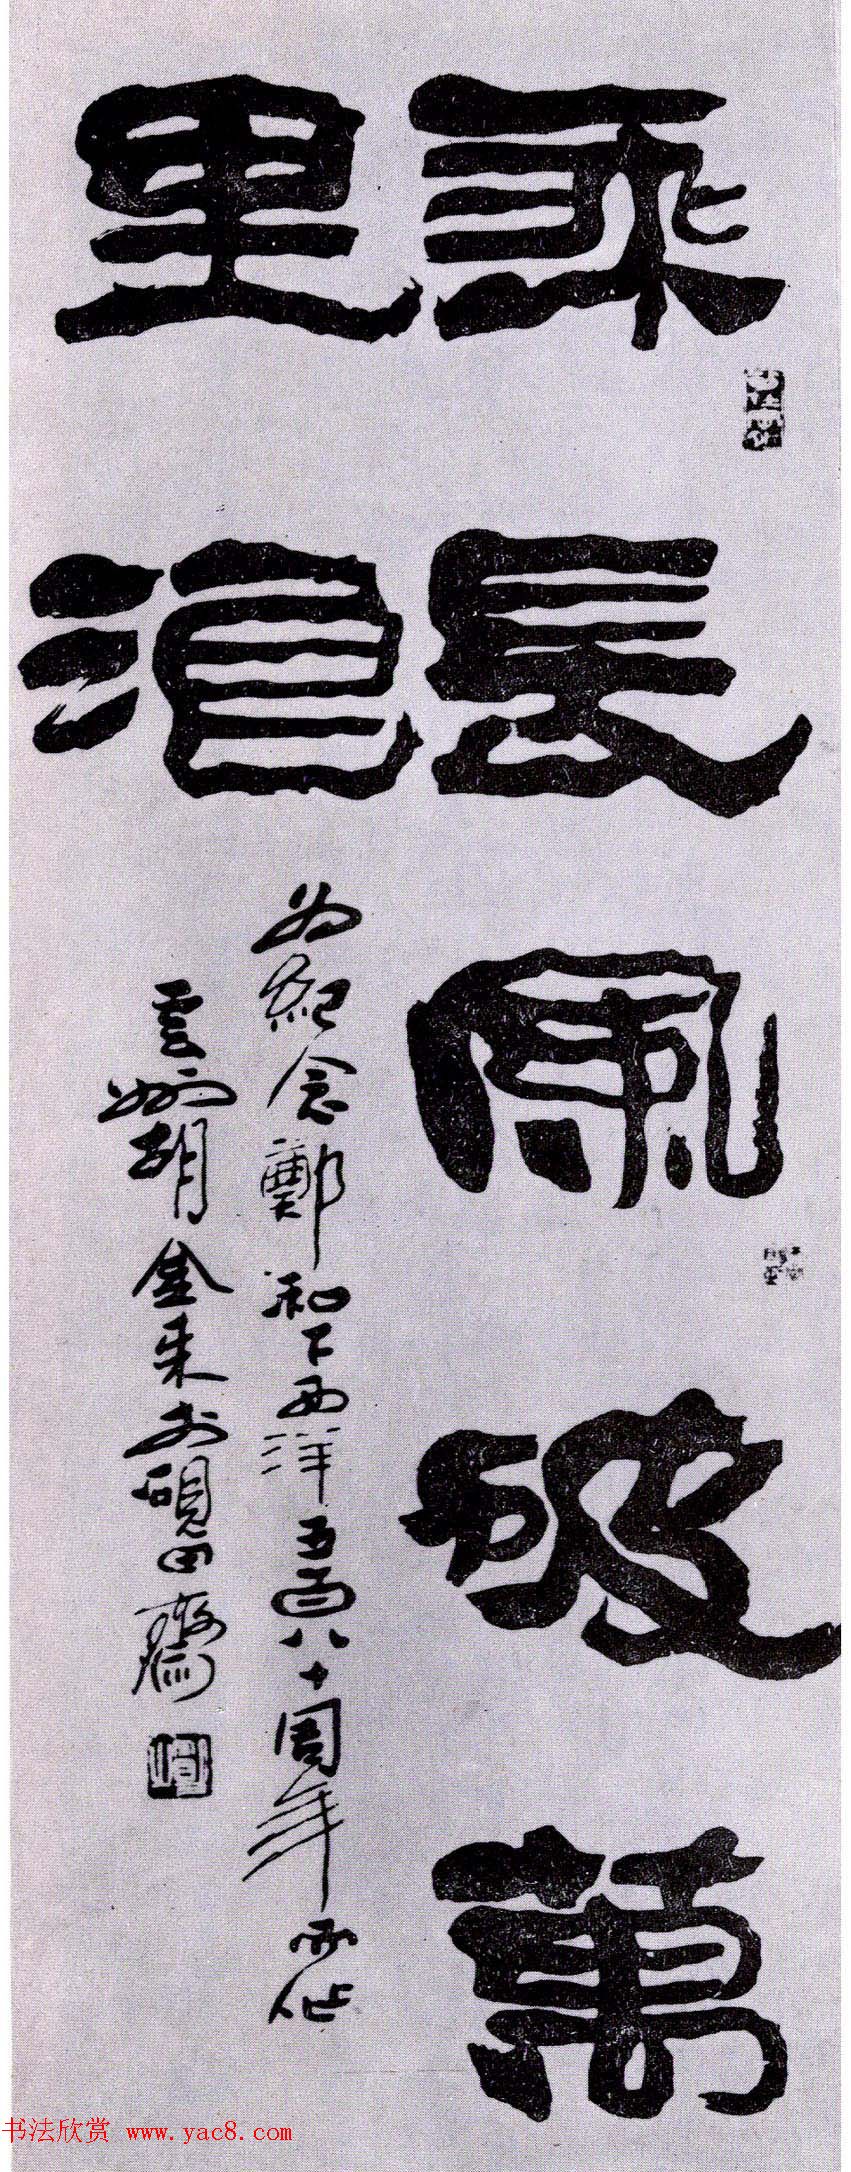 乘長風破萬
里浪
为紀念鄭和下西洋五百八十周年而作
雲州胡金来书硯田齋
书法欣赏 www.yac8.com